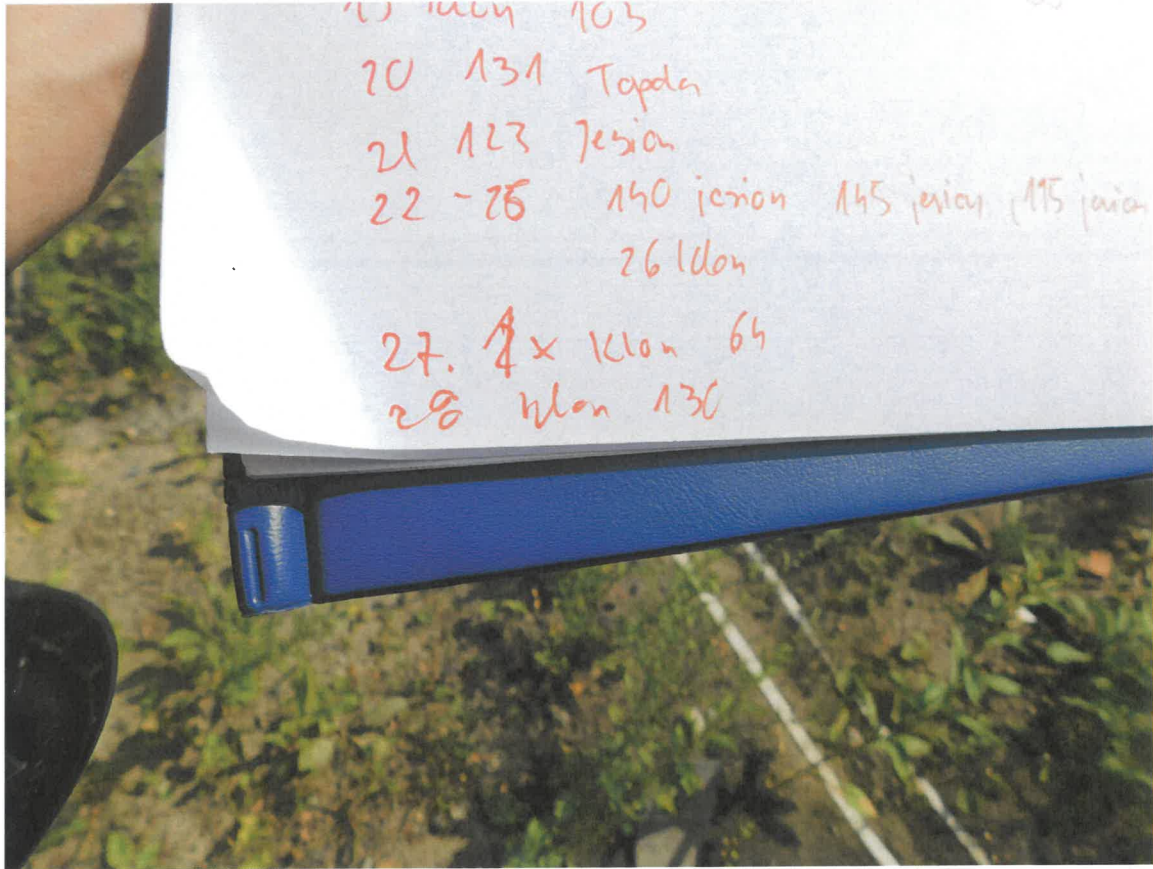 klon 103
20 131 Topola
21 123 Jesion
22 - 26 140 jesion 145 jesion, 115 jesion
26 klon
27. 1 x Klon 64
28 klon 130